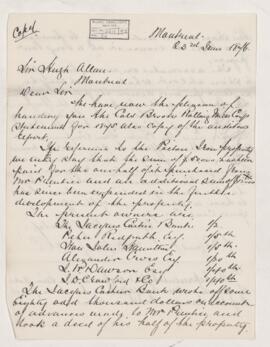 Copy
Montreal
23rd June 1876
Sir Hugh Allan
Montreal
Dear Sir
We have now the pleasure of
handing you the Cold Brook Rolling Mills Coys
Statement for 1875 also copy of the auditors
report.
In reference to the Pictou Iron property
we may say that the sum of
paid for the one half of it purchased from
Mr and an additional sum of
has since been expended in the further
development of the property.
The present owners are
The Jacques Cartier Bank 1/2
Peter Redpath Esq
Alexander Esq
J. W. Dawson Esq
J. D. Crawford & Co
The Jacques Cartier Bank wrote off some
Eighty odd thousand dollars on account
of advances made to Mr and
took a deed of his half of the property